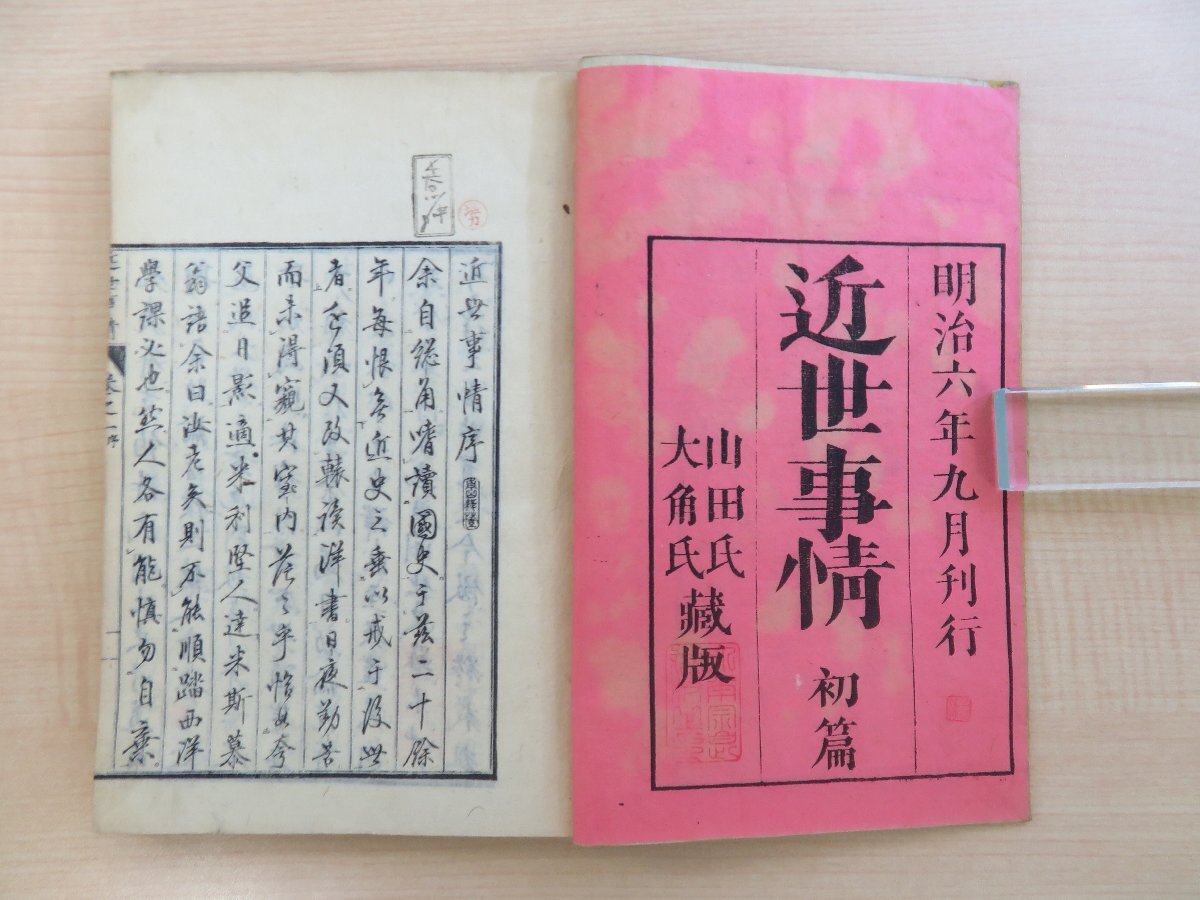 明治六年九月刊行
近世事情 初篇
山田氏
大角氏
藏版
近世事情序
余自總角嗜讀國史于茲二十餘
年每恨無近史之垂以戒于後世
者近須又改轅讀洋書日夜勤苦
而未得窺其室內茫々乎恰如夸
父追日影適米利堅人達米斯慕
翁語余曰汝老矣則不能順踏西洋
學課必也然人各有能慎勿自棄